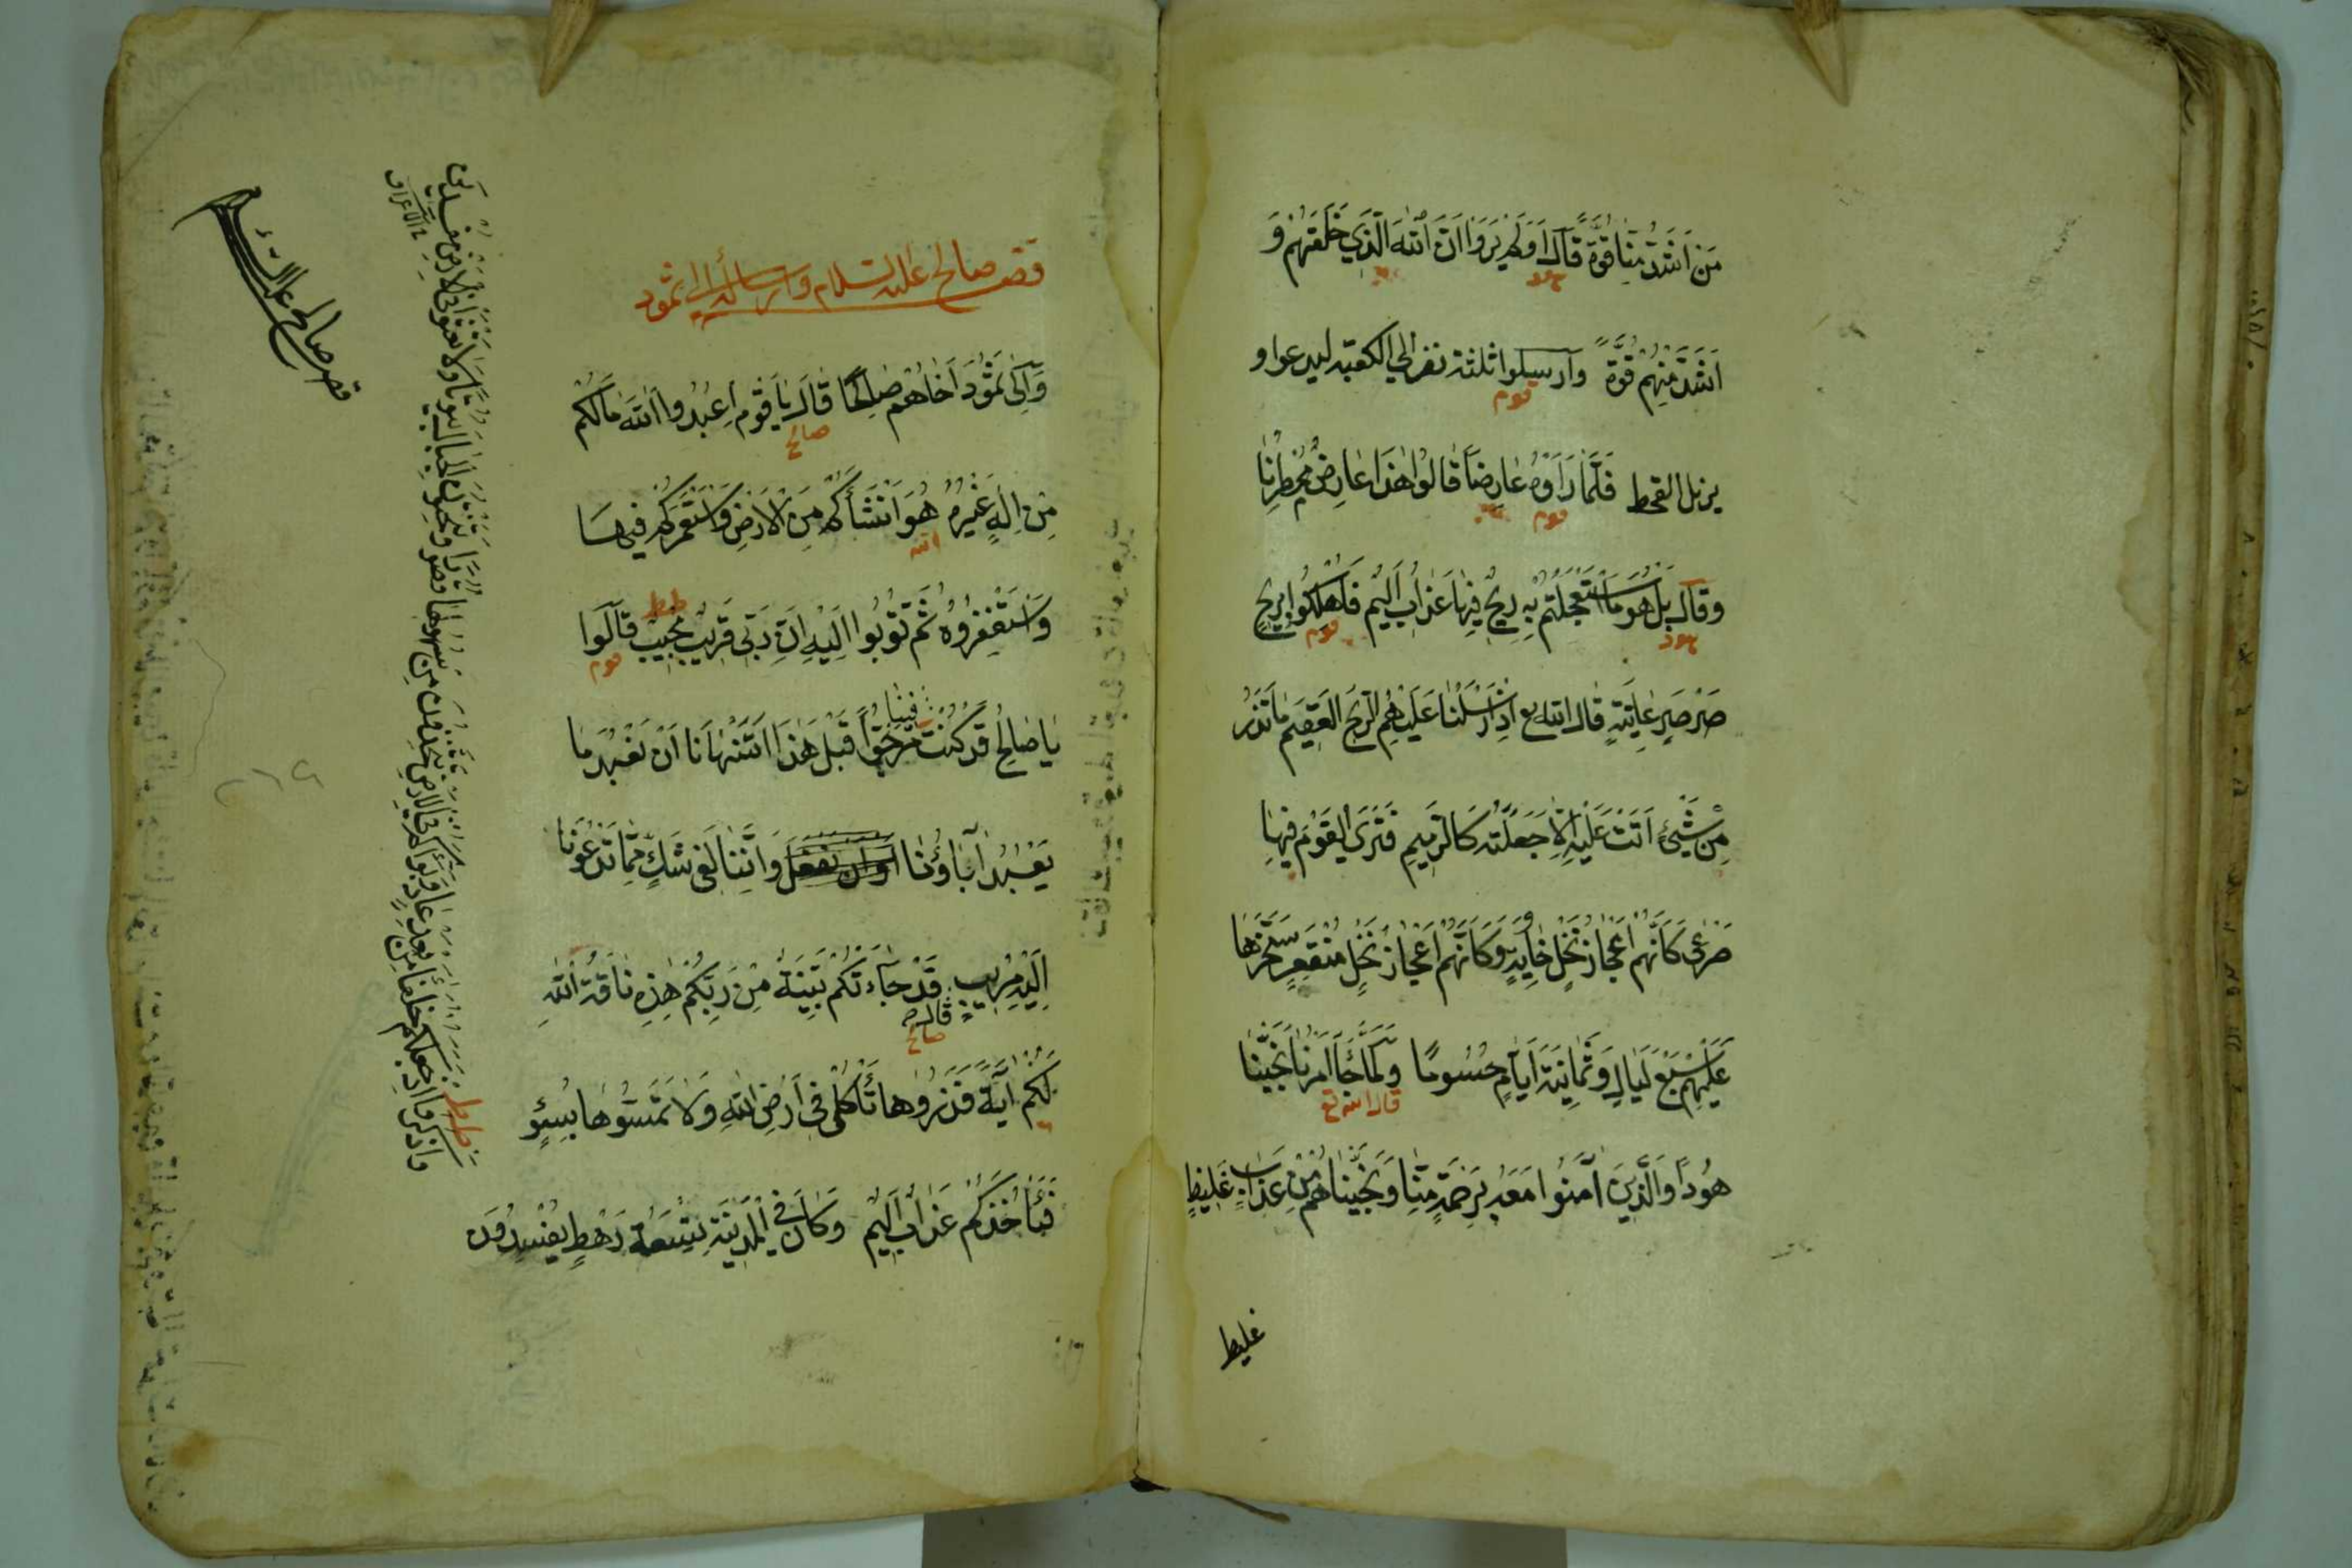 مَنْ اَشَدُّ مِنَّا قُوَّةً قَالَ اَوَلَمْ يَرَوْا اَنَّ اللّٰهَ الَّذِي خَلَقَهُمْ وَ
هود
اَشَدُّ مِنْهُمْ قُوَّةً وارسلوا ثلثة نفر الي الكعبة ليدعوا و
قوم
يزيل القحط فَلَمَّا رَاَوْهُ عَارِضًا قَالُوا هٰذَا عَارِضٌ مُمْطِرُنَا
قوم
وقال بَلْ هُوَ مَا اسْتَعْجَلْتُمْ بِهِ رِيحٌ فِيهَا عَذَابٌ اَلِيمٌ فَاُهْلِكُوا بِرِيحٍ
هود قوم
صَرْصَرٍ عَاتِيَةٍ قال الله تع اِذْ اَرْسَلْنَا عَلَيْهِمُ الرِّيحَ الْعَقِيمَ مَا تَذَرُ
مِنْ شَيْئٍ اَتَتْ عَلَيْهِ اِلَّا جَعَلَتْهُ كَالرَّمِيمِ فَتَرَى الْقَوْمَ فِيهَا
صَرْعٰى كَاَنَّهُمْ اَعْجَازُ نَخْلٍ خَاوِيَةٍ وَكَاَنَّهُمْ اَعْجَازُ نَخْلٍ مُنْقَعِرٍ سَخَّرَهَا
عَلَيْهِمْ سَبْعَ لَيَالٍ وَثَمَانِيَةَ اَيَّامٍ حُسُومًا وَلَمَّا جَاءَ اَمْرُنَا نَجَّيْنَا
قال الله تع
هُودًا وَالَّذِينَ اٰمَنُوا مَعَهُ بِرَحْمَةٍ مِنَّا وَنَجَّيْنَاهُمْ مِنْ عَذَابٍ غَلِيظٍ
غليظ
قصص صالح عليه السلام وارساله الى ثمود
وَاِلٰى ثَمُودَ اَخَاهُمْ صَالِحًا قَالَ يَا قَوْمِ اعْبُدُوا اللّٰهَ مَا لَكُمْ
صالح
مِنْ اِلٰهٍ غَيْرُهُ هُوَ اَنْشَاَكُمْ مِنَ الْاَرْضِ وَاسْتَعْمَرَكُمْ فِيهَا
الله
وَاسْتَغْفِرُوهُ ثُمَّ تُوبُوا اِلَيْهِ اِنَّ رَبِّي قَرِيبٌ مُجِيبٌ قَالُوا
قوم
يَا صَالِحُ قَدْ كُنْتَ فِينَا مَرْجُوًّا قَبْلَ هٰذَا اَتَنْهَانَا اَنْ نَعْبُدَ مَا
يَعْبُدُ اٰبَاؤُنَا وَاِنَّنَا لَفِي شَكٍّ مِمَّا تَدْعُونَا
اِلَيْهِ مُرِيبٍ قال قَدْ جَاءَتْكُمْ بَيِّنَةٌ مِنْ رَبِّكُمْ هٰذِهِ نَاقَةُ اللّٰهِ
صالح
لَكُمْ اٰيَةً فَذَرُوهَا تَأْكُلْ فِي اَرْضِ اللّٰهِ وَلَا تَمَسُّوهَا بِسُوءٍ
فَيَأْخُذَكُمْ عَذَابٌ اَلِيمٌ وَكَانَ فِي الْمَدِينَةِ تِسْعَةُ رَهْطٍ يُفْسِدُونَ
واذكروا اذ جعلكم خلفاء من بعد عاد وبواكم في الارض تتخذون من سهولها قصورا وتنحتون الجبال بيوتا ولا تعثوا في الارض مفسدين
الاعراف
قصص صالح عليه السلام